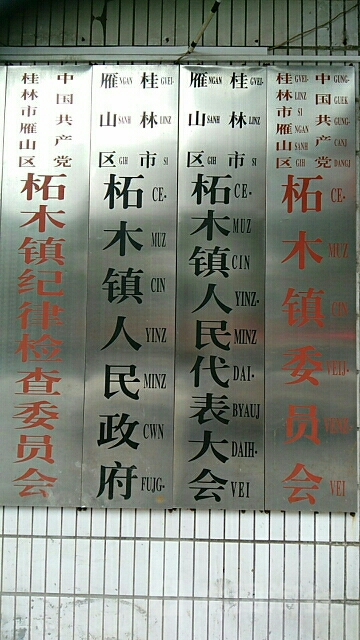 中国共产党
GUNG- GUEK GUNG- CANJ DANGJ
桂林市雁山区
GVEI- LINZ SI NGAN SANH GIH
柘木镇委员会
CE- MUZ CIN VEIJ- VEI
桂林市
GVEI- LINZ SI
雁山区
NGAN SANH GIH
柘木镇人民代表大会
CE- MUZ CIN YINZ- MINZ DAI- BYAUJ DAIH- VEI
桂林市
GVEI- LINZ SI
雁山区
NGAN SANH GIH
柘木镇人民政府
CE- MUZ CIN YINZ MINZ CWN FUJG-
中国共产党
桂林市雁山区
柘木镇纪律检查委员会